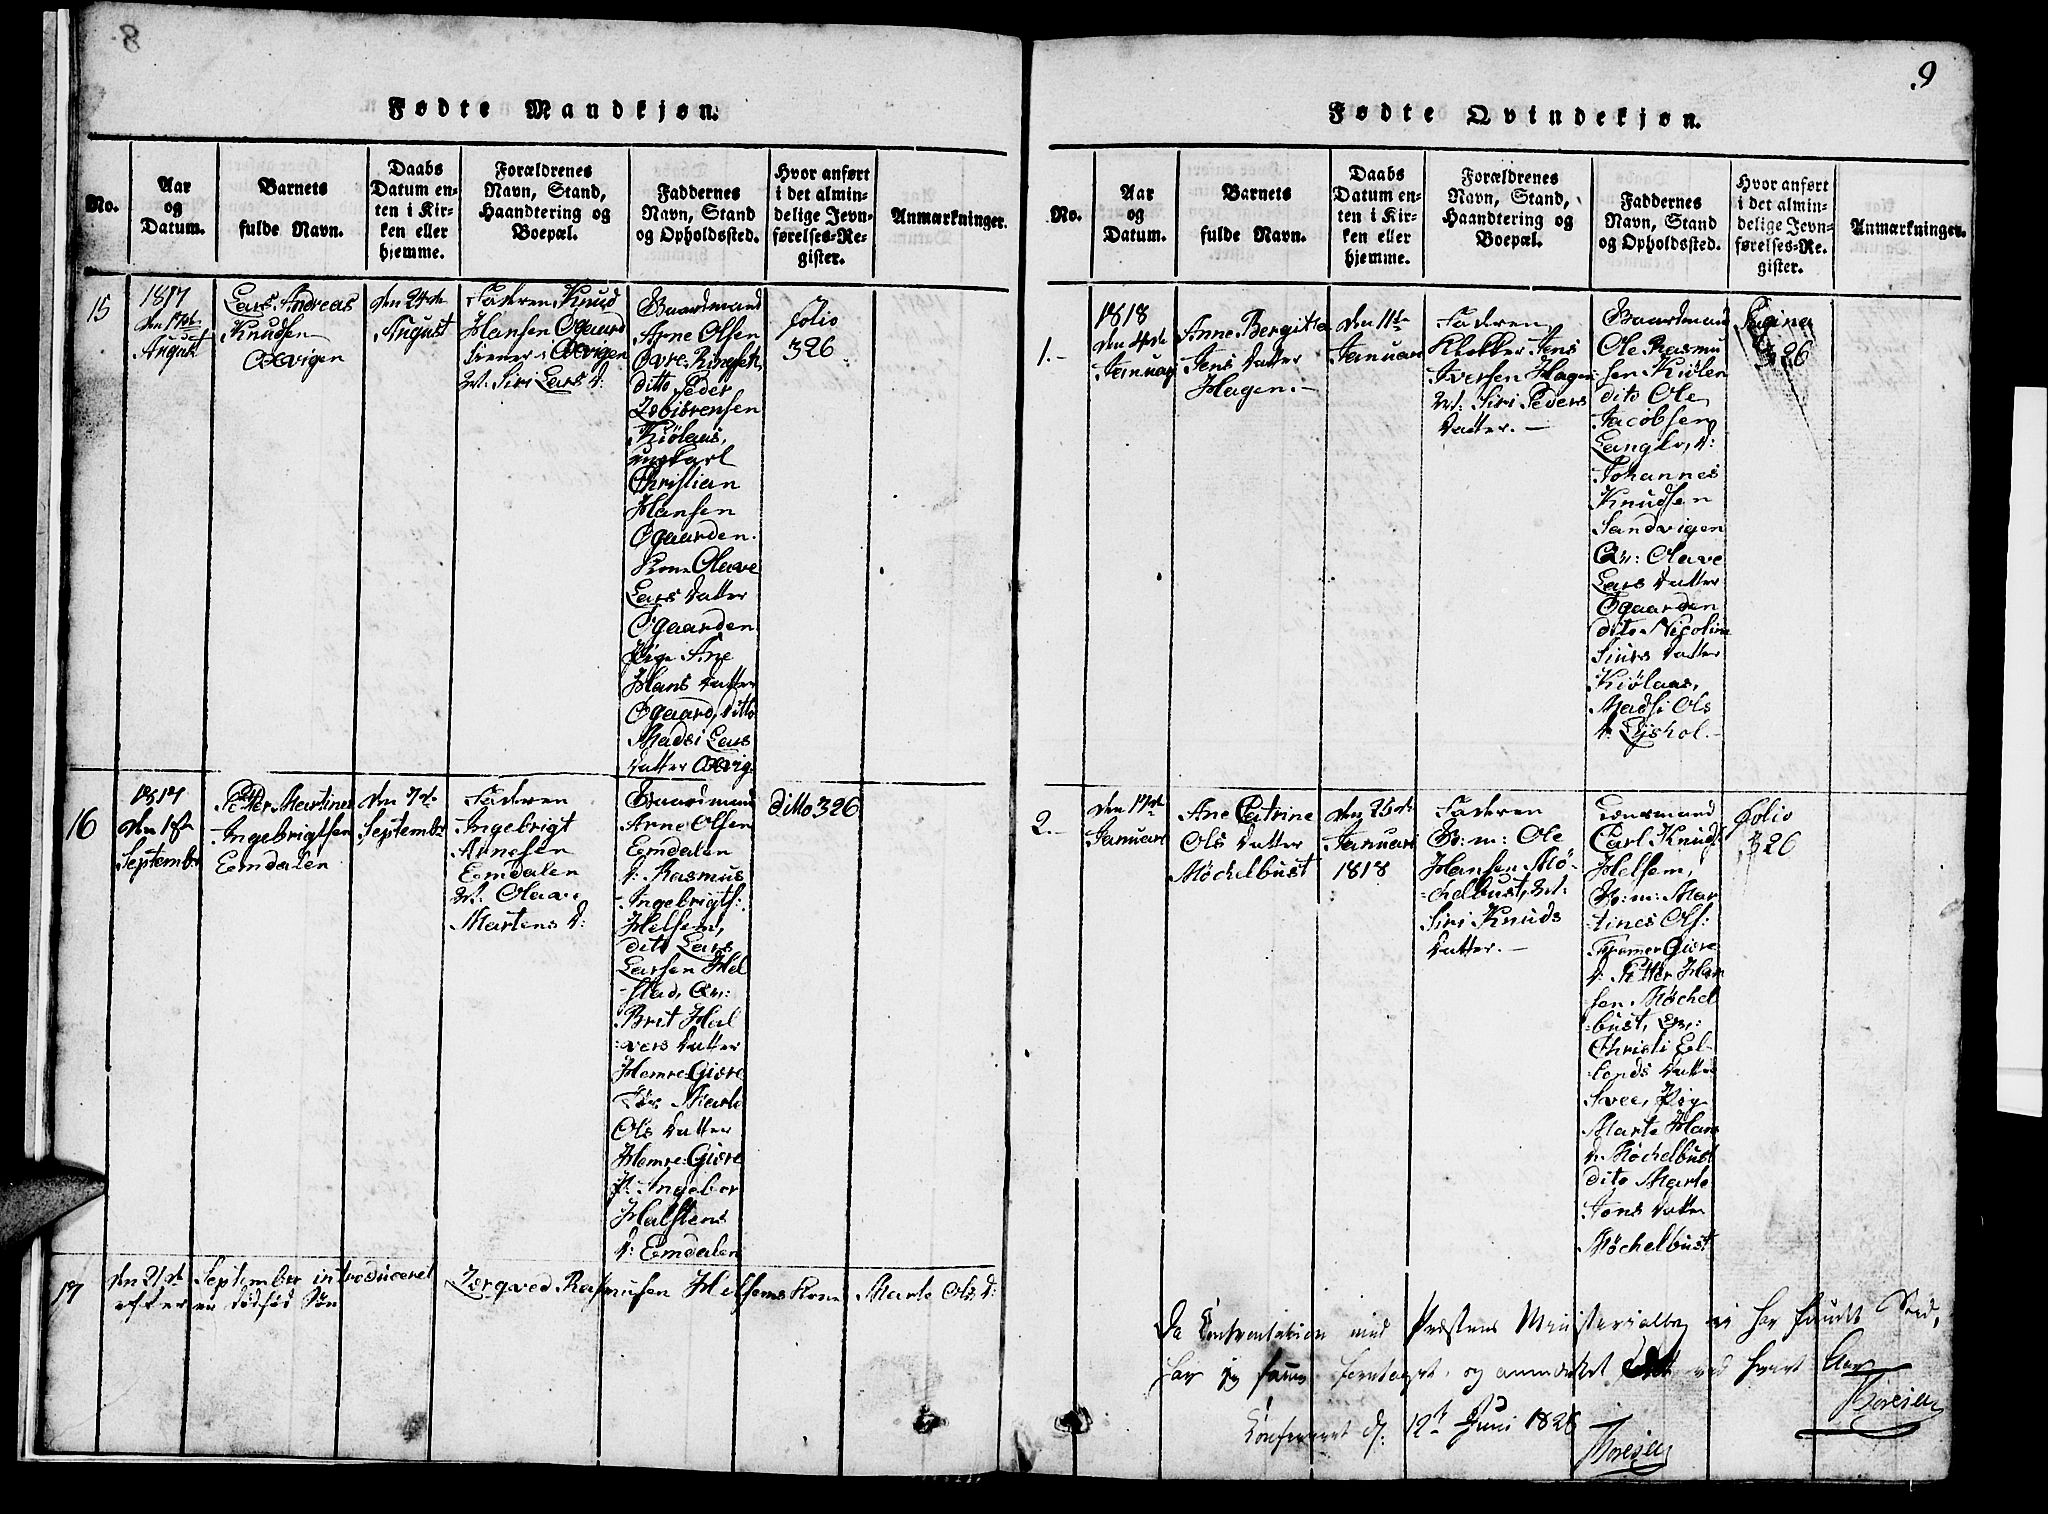 8
Fødte Mandkjøn.
No.
Aar
og
Datum.
Barnets
fulde Navn.
Daabs
Datum en-
ten i Kir-
ken eller
hjemme.
Forældrenes
Navn, Stand,
Haandtering og
Boepæl.
Faddernes
Navn, Stand
og Opholdssted.
Hvor anført
i det almin-
delige Jevn-
førelses-Re-
gister.
Anmærkninger.
15
1817
den 17de
August
Lars Andreas
Knudsen
Oxvigen
den 24de
August
Faderen Knud
Hansen Øgaard
Oxvigen
M. Siri Lars D:
Gaardmand
Arne Olsen
Øvre
ditto Peder
Esbiörensen
Kiölaas,
ungkarl
Christian
Hansen
Øgaarden.
Kone Olave
Lars Datter
Øgaarden
Pige Ane
Hans Datter
Øgaard, Ditto
Madsi Lars
Datter Oxvig
folio
326
16
1817
den 1ste
September
Petter Martines
Ingebrigtsen
Emdalen
den 7de
September
Faderen
Ingebrigt
Arnesen
Emdalen
M. Olave
Martens D:
Gaardmand
Arne Olsen
Emdalen
D: Rasmus
Ingebrigts:
Helsem,
dito Lars
Larsen Hel
stad, Qv:
Brit Hal
vers Datter
Hemre Giøre
Marte
Ols Datter
Hemre Giøre
P: Ingebor
Halstens
D: Emdalen
ditto 326
17
den 21de September introduceret
efter en dödföd Sön
Rasmusen Helsems Kone Marte Ols D:
9
Fødte Qvindekjøn.
No.
Aar
og
Datum.
Barnets
fulde Navn.
Daabs
Datum en-
ten i Kir-
ken eller
hjemme.
Forældrenes
Navn, Stand,
Haandtering og
Boepæl.
Faddernes
Navn, Stand
og Opholdssted.
Hvor anført
i det almin-
delige Jevn-
førelses-Re-
gister.
Anmærkninger.
1.-
1818
den 4de
Januar
Anne Bergitte
Jens Datter
Hagen.-
den 11te
Januari
Faderen
Klokker Jens
Iversen Hagen
M: Siri Peders
Datter.-
Gaardmand
Ole Rasmu
sen Kiölen
dito Ole
Jacobsen
Langlo, D:
Johannes
Knudsen
Sandvigen
Qv: Olave
Lars Datter
Øgaarden
dito Nicoline
Siurs Datter
Kiölaas,
Madsi Ols
D:
Pagina
326
2.-
den 17de
Januari
Ane Catrine
Ols Datter
Möchelbust
den 25de
Januari
1818
Faderen
G: m: Ole
Hansen Mö-
chelbust, M:
Siri Knuds
Datter.-
Lensmand
Carl Knuds
Helsem,
G: m: Mar
tines Ols:
Giøre
D. Petter Han
sen Möchel
bust,
Christi El-
lends Datter
Pig
Marte Hans
D: Möchelbust
dito Marte
Jons Datter
Möchelbust
folio
326
Da Confrontation med Præstens Ministerialbog ei har fundet Sted,
har jeg foretaget, og anmærket ved hvert Aar
Thoresen
Confereret d: 12te Juni 1826
Thoresen